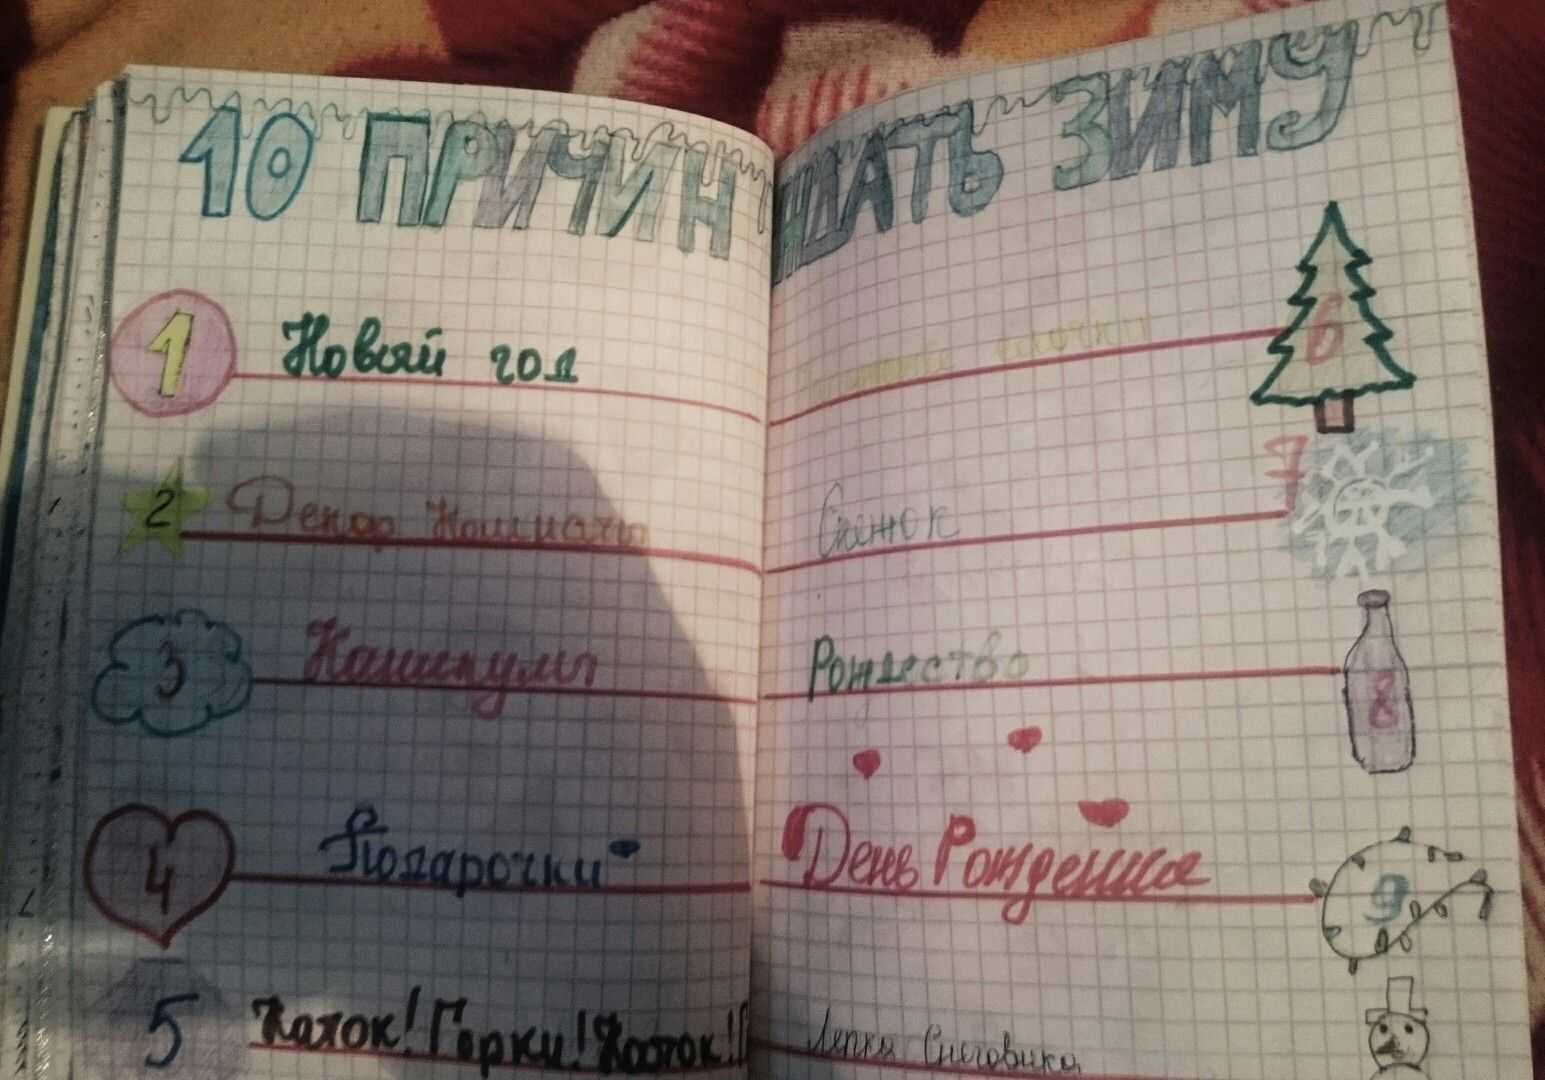 10 ПРИЧИН ЖДАТЬ ЗИМУ
1 Новый год
2 Декор Комнаты
3 Каникулы
4 Подарочки
5 Каток! Горки! Каток!
6 ёлочки
7 Снежок
8 Рождество
9 День Рождения
Лепка Снеговика